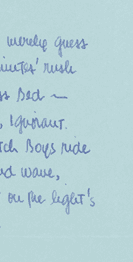 merely guess
minutes' rush
ss Bed —
, Ignorant.
tch Boys ride
nd wave,
on the light's